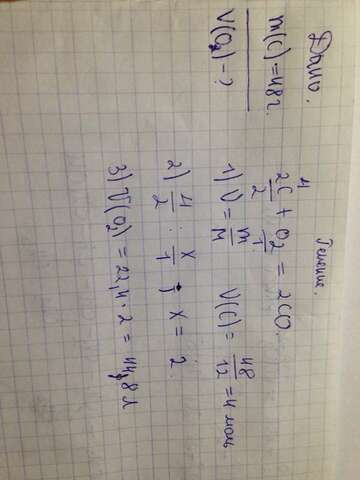 Дано:
m(C)=48г.
V(O2)-?
Решение.
4 x
2C + O2 = 2CO.
2 1
1) V = m/M V(C) = 48/12 = 4 моль
2) 4/2 : x/1 ; x = 2.
3) V(O2) = 22,4 · 2 = 44,8 л